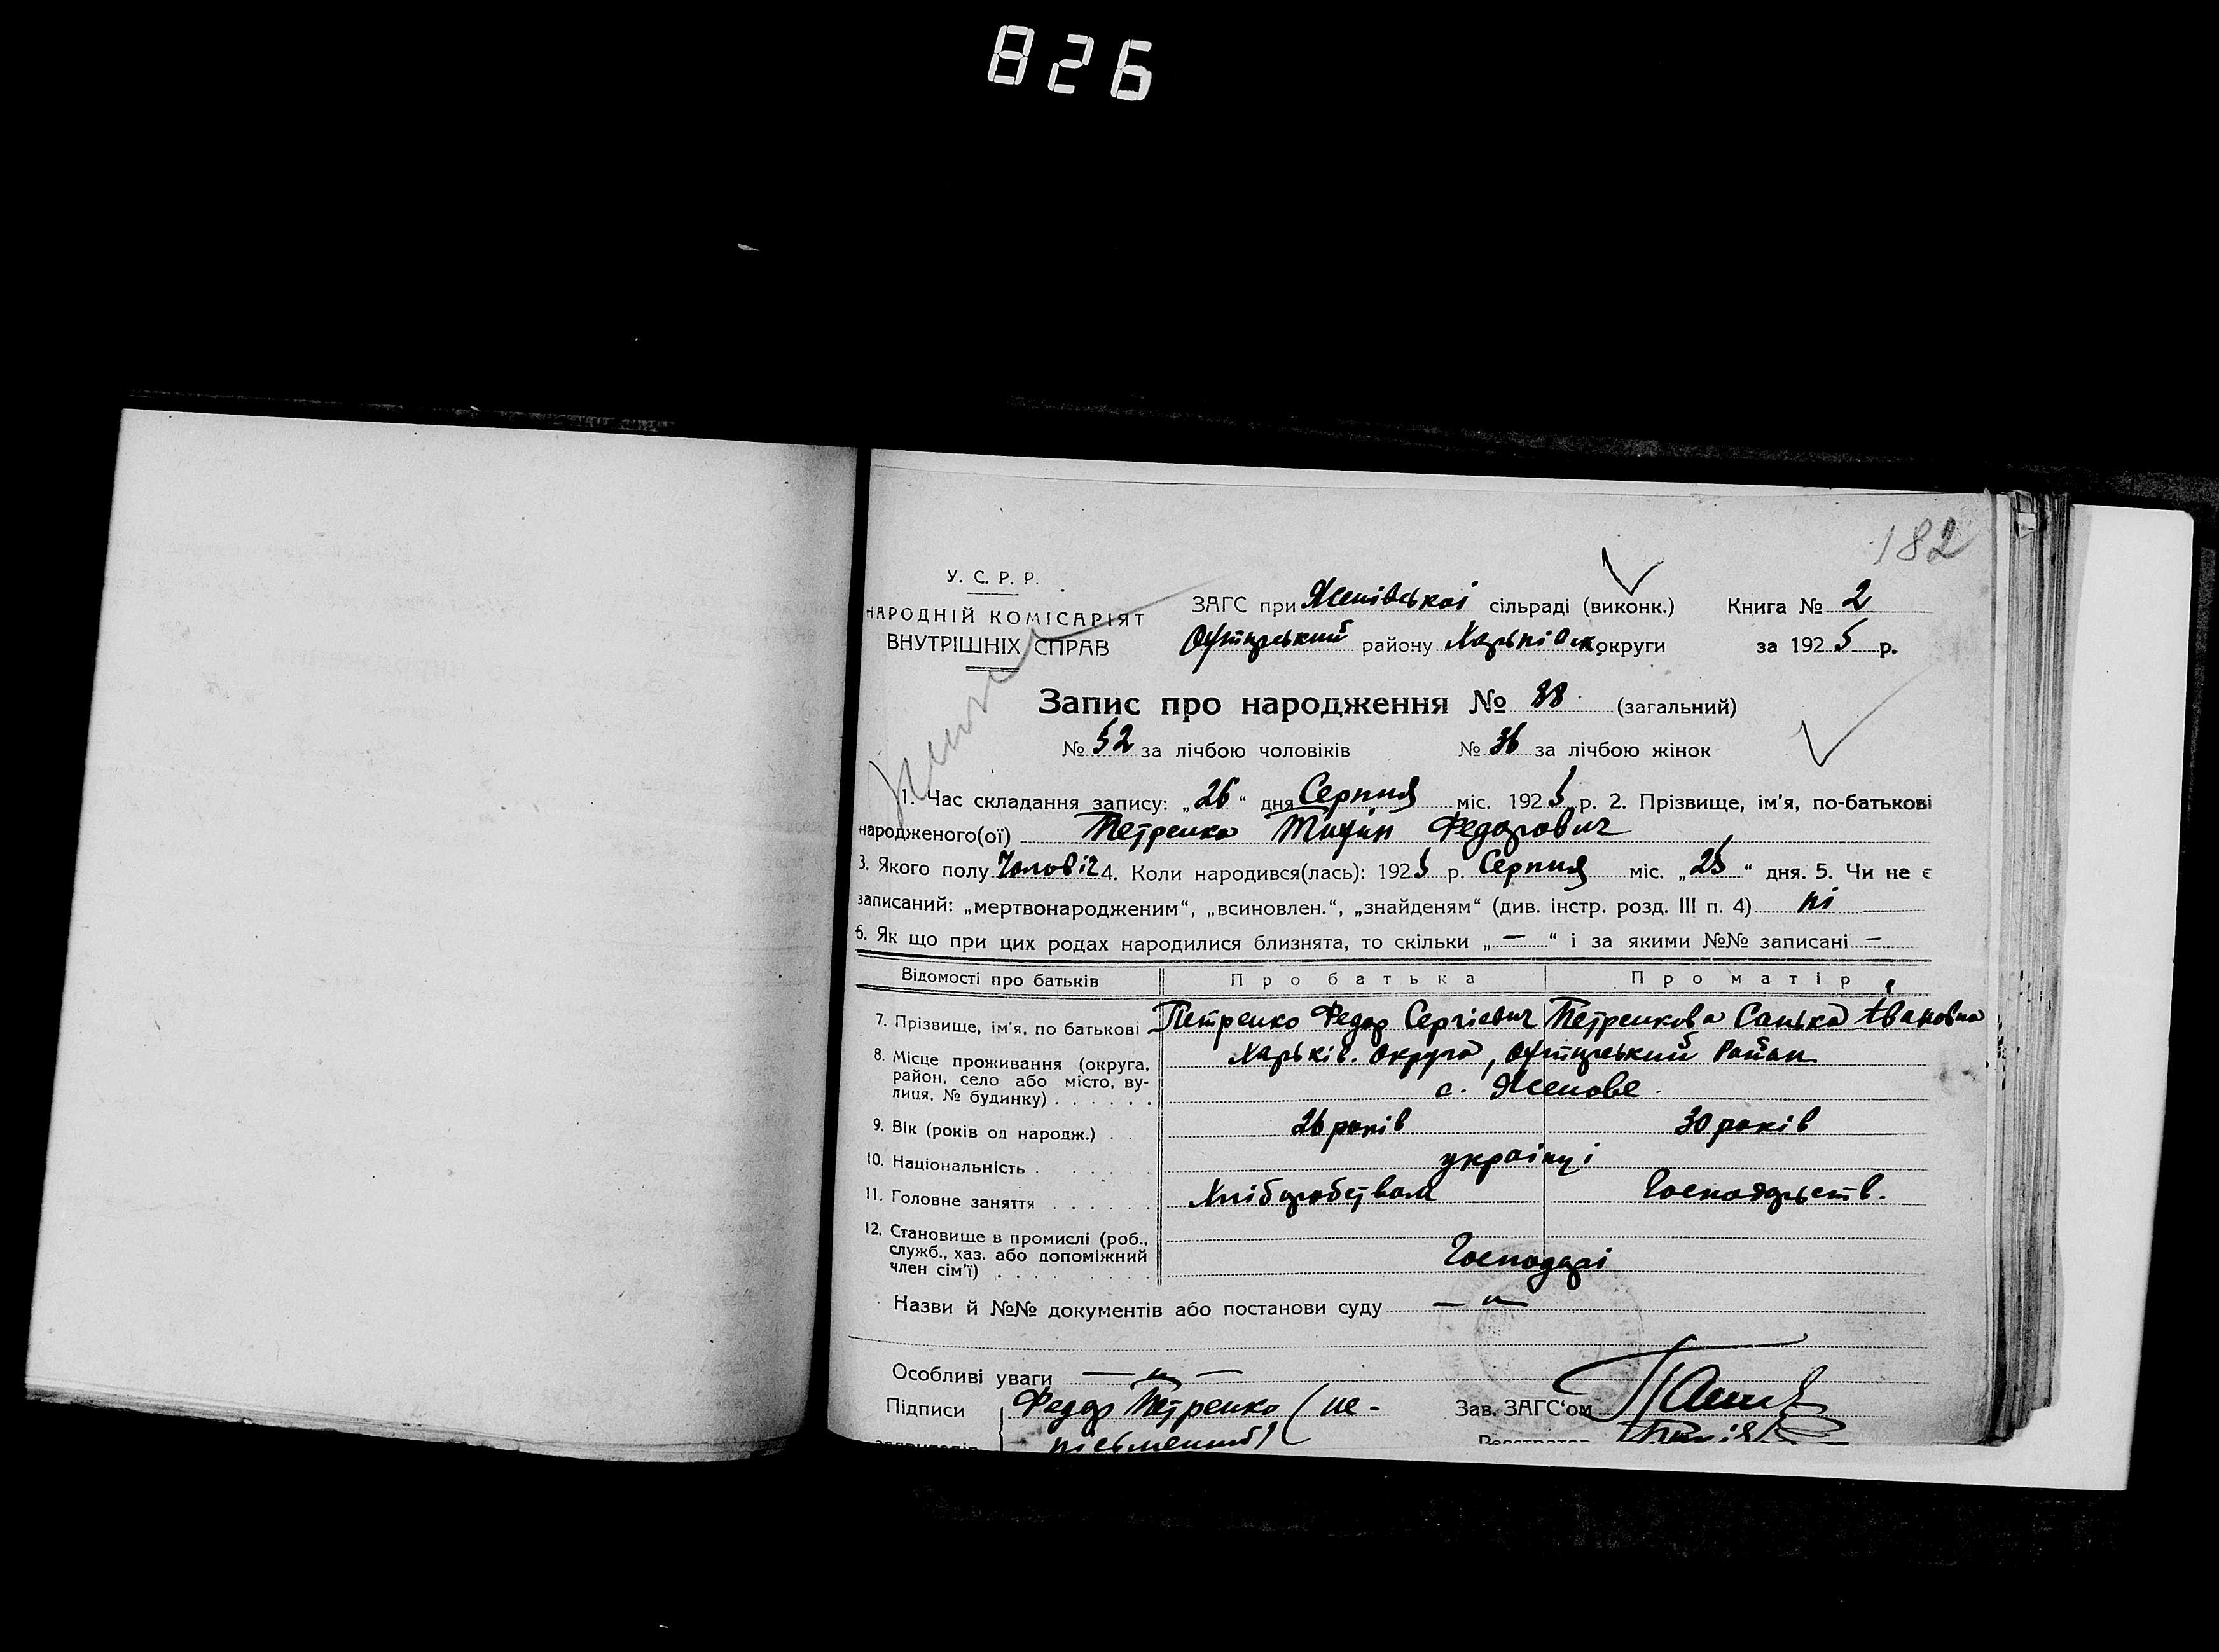 826
182
У. С. Р. Р.
НАРОДНІЙ КОМІСАРІЯТ
ВНУТРІШНІХ СПРАВ
ЗАГС при сільраді (виконк.) Книга № 2
району округи за 1925 р.
Запис про народження № 88 (загальний)
№ 52 за лічбою чоловіків № 36 за лічбою жінок
1. Час складання запису: „26“ дня Серпня міс. 1925 р. 2. Прізвище, ім'я, по-батькові
народженого(ої) Петренко Федорович
3. Якого полу Чоловіч 4. Коли народився(лась): 1925 р. Серпня міс. „25“ дня. 5. Чи не є
записаний: „мертвонародженим“, „всиновлен.“, „знайденям“ (див. інстр. розд. III п. 4) ні
6. Як що при цих родах народилися близнята, то скільки „—“ і за якими №№ записані —
Відомості про батьків Про батька Про матір
7. Прізвище, ім'я, по батькові Петренко Федор Сергієвич Петренкова Санька Івановна
8. Місце проживання (округа, Харьків. Округа, Район
район, село або місто, ву-
лиця, № будинку) . . . . . . с. Ясенове.
9. Вік (років од народж.) . . 26 років 30 років
10. Національність . . . . . українці
11. Головне заняття . . . . . . Хліборобством Господарств.
12. Становище в промислі (роб.,
служб., хаз. або допоміжний
член сім'ї) . . . . . . . . . Господарі
Назви й №№ документів або постанови суду — " —
Особливі уваги — " —
Підписи Федор Петренко (не- Зав. ЗАГС'ом
заявителів письменний) Реєстратор